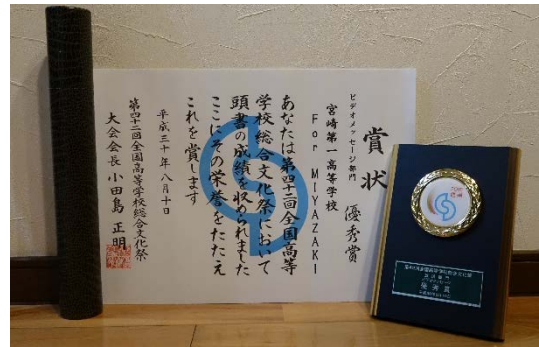 賞状
ビデオメッセージ部門 優秀賞
宮崎第一高等学校
For MIYAZAKI
あなたは第四十二回全国高等
学校総合文化祭において
頭書の成績を収められました
ここにその栄誉をたたえ
これを賞します
平成三十年八月十日
第四十二回全国高等学校総合文化祭
大会会長 小田島 正明
優秀賞